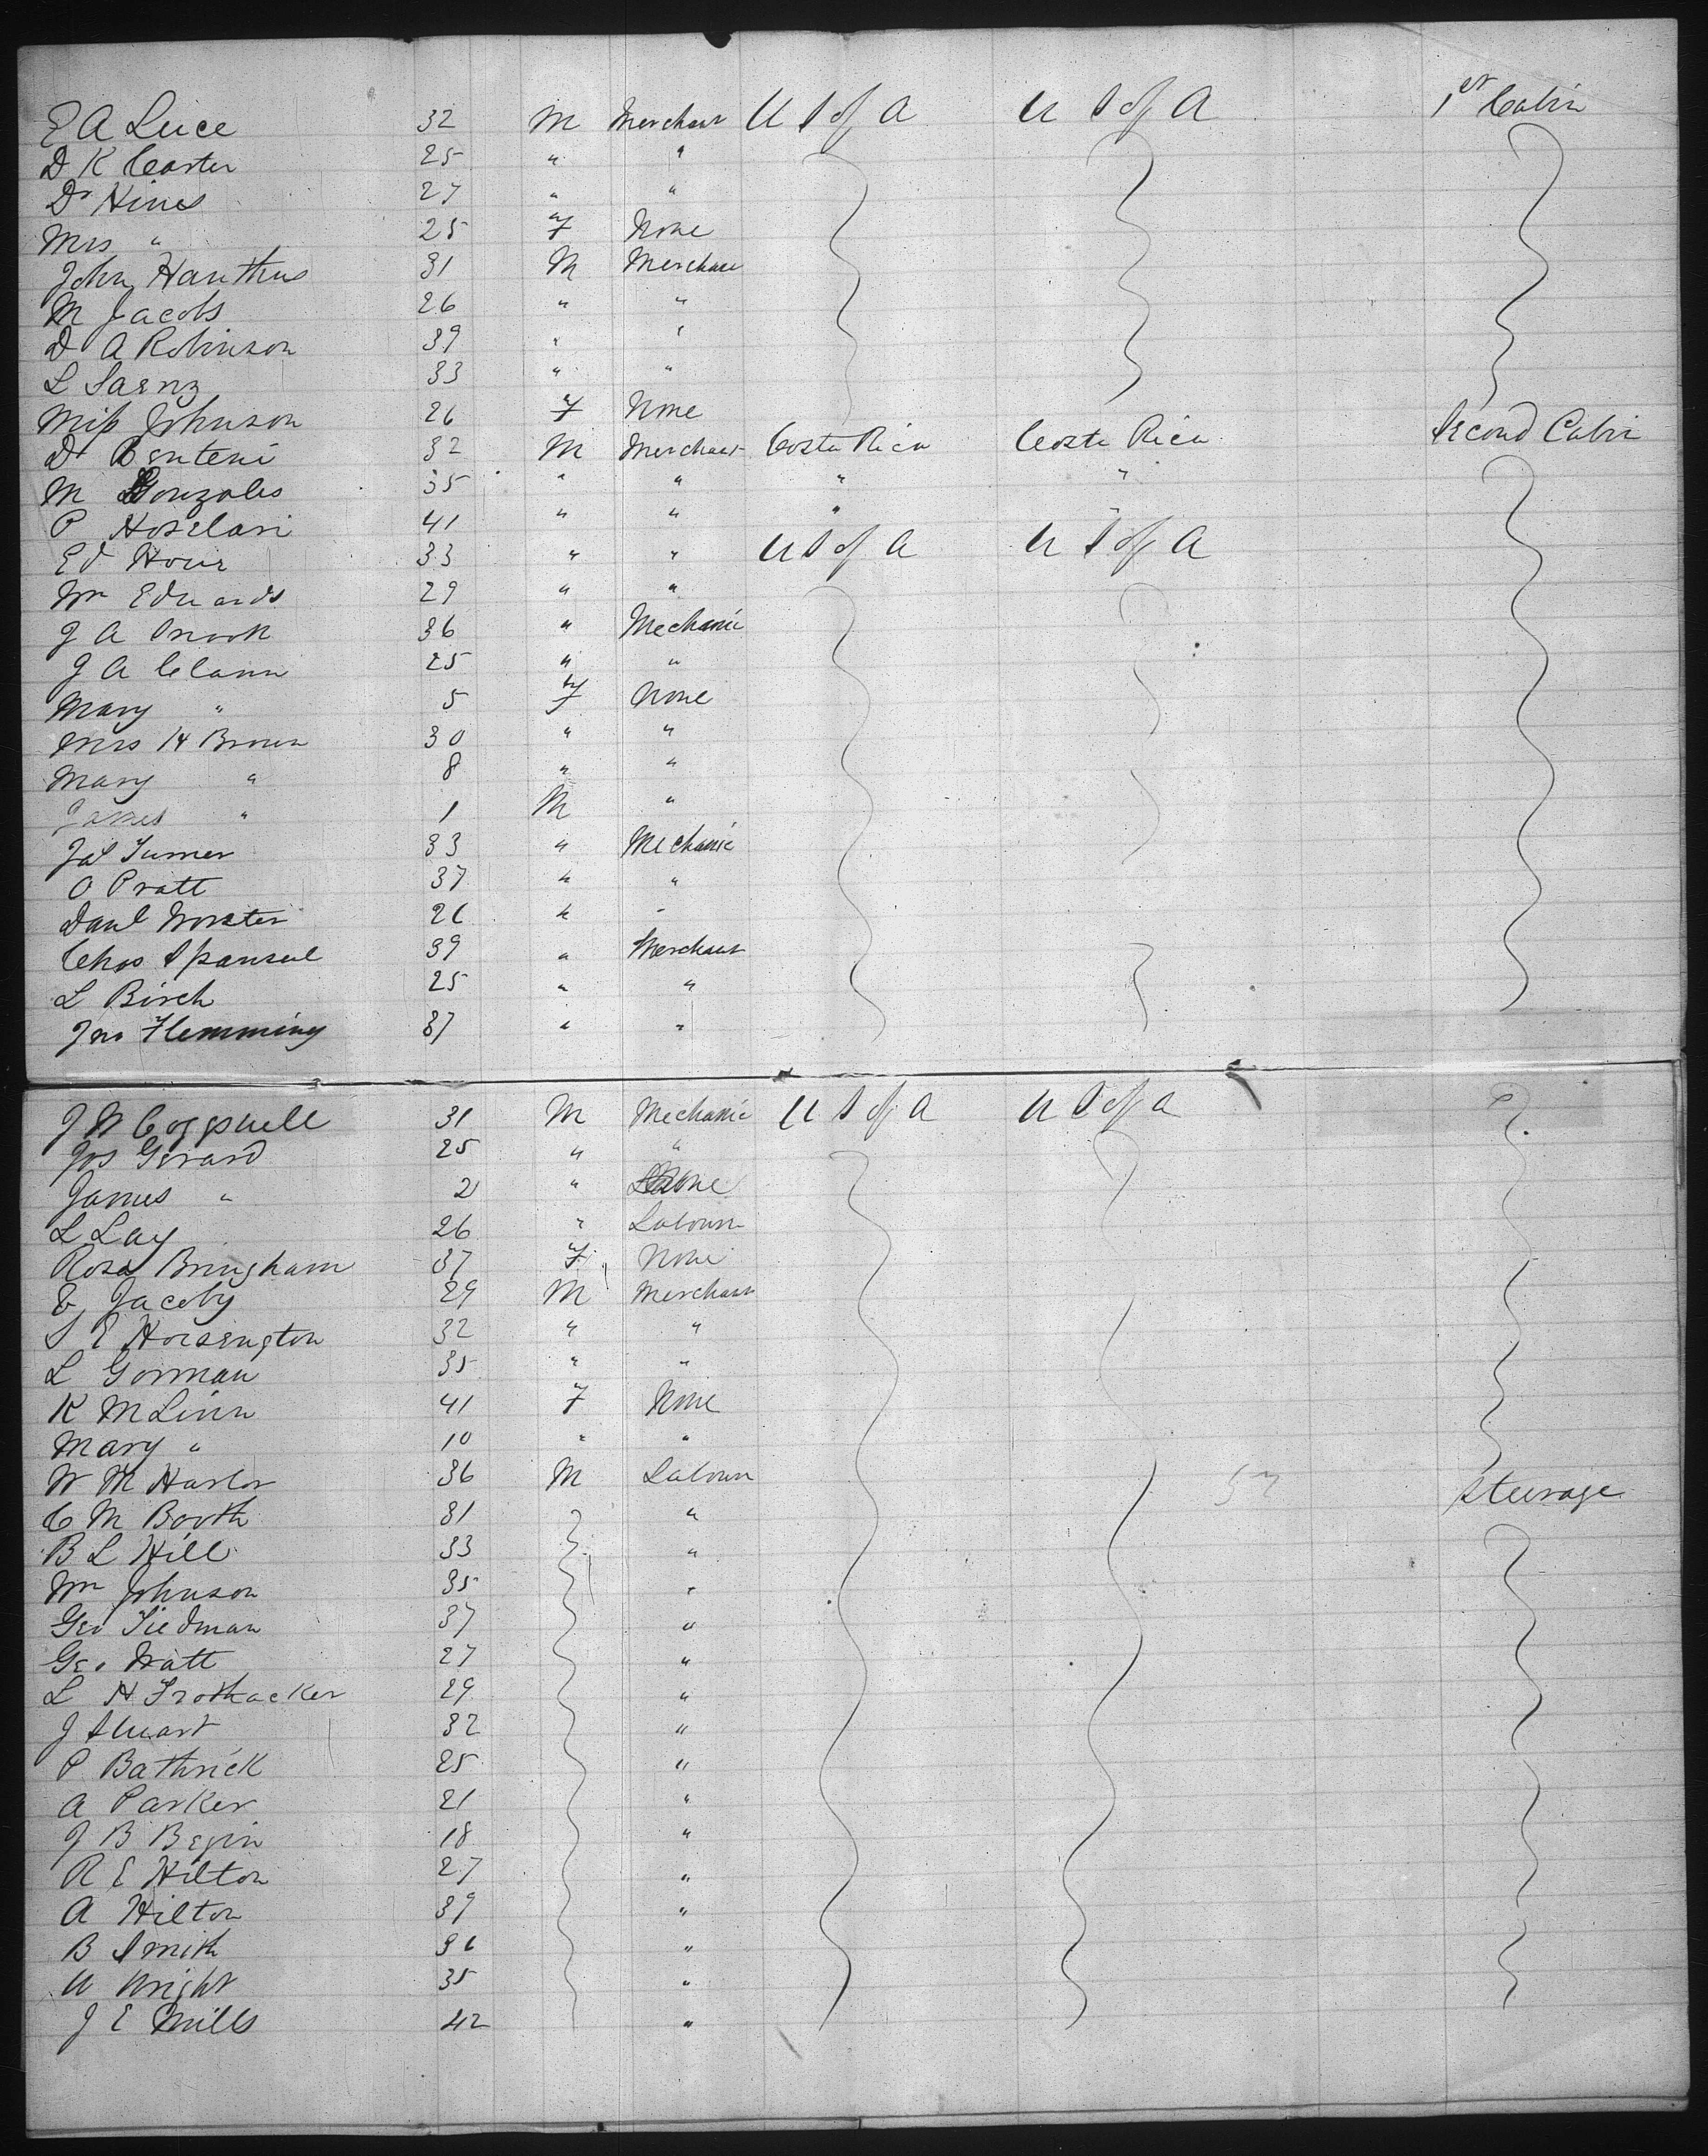 E A Luce 32 M Merchant U S of A U S of A 1st Cabin
D K Carter 25 " "
Dr Hines 27 " "
Mrs " 25 F None
John Hanthus 31 M Merchant
M Jacobs 26 " "
D A Robinson 39 " "
L Saenz 33 " "
Miss Johnson 26 F None
D Benteni 32 M Merchant Costa Rica Costa Rica Second Cabin
M Gonzales 35 " " " "
P 41 " " "
Ed 33 " " U S of A U S of A
Wm Edwards 29 " "
J A 36 " Mechanic
J A Clann 25 " "
Mary " 5 F None
Mrs H Brown 30 " "
Mary " 8 " "
James " 1 M "
Jas Turner 33 " Mechanic
O Pratt 37 " "
Danl Worster 26 " "
Chas 39 " Merchant
L Birch 25 " "
Jno Flemming 37 " "
J W Coggswell 31 M Mechanic U S of A U S of A
Jos Gerard 25 " "
James " 2 " None
L Lay 26 " Laborer
Rosa Bringham 37 F None
E Jacoby 29 M Merchant
S E Horsington 32 " "
L Gorman 35 " "
K McLinn 41 F None
Mary " 10 " "
W M Harlor 36 M Laborer 52 Steerage
C M Booth 31 "
B L Hill 33 "
Wm Johnson 35 "
Geo Tiedman 37 "
Geo Watt 27 "
L H Trothacker 29 "
J Stuart 32 "
P Bathrick 25 "
A Parker 21 "
J B Begin 18 "
R E Hilton 27 "
A Hilton 39 "
B Smith 36 "
W Wright 35 "
J E Mills 42 "